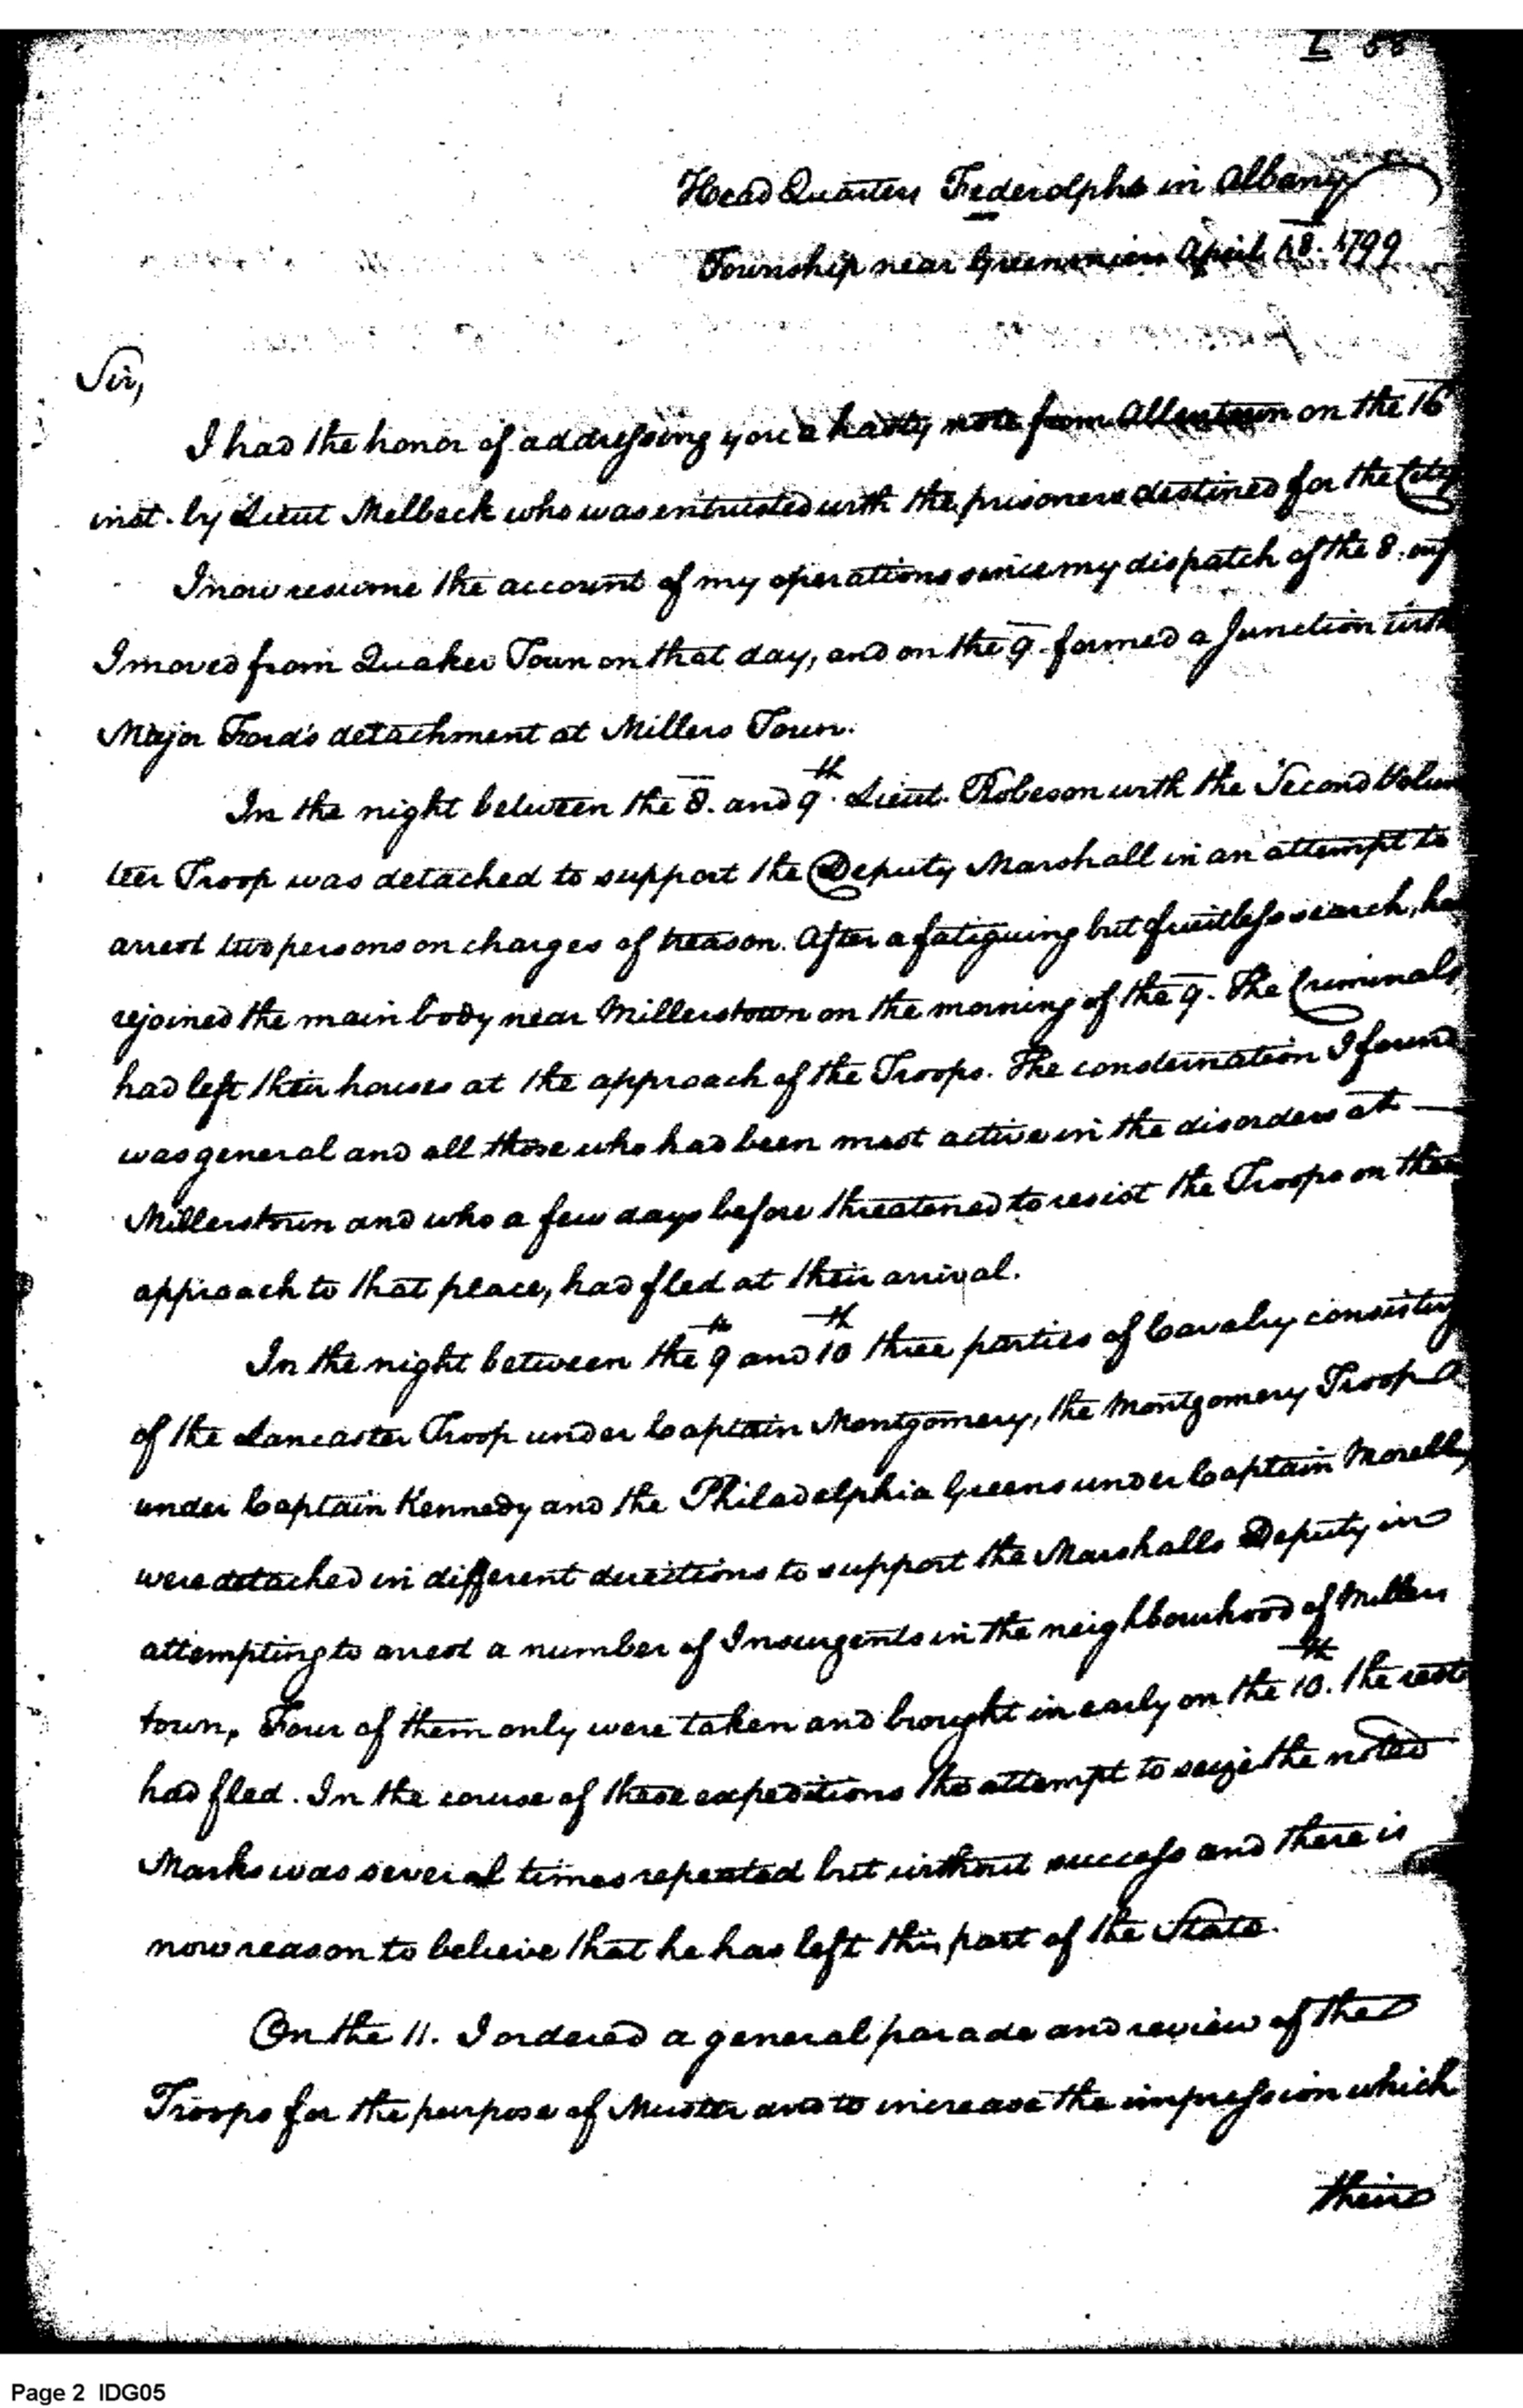 I 58
Head Quarters Federolphs in Albany
Township near April 18. 1799
Sir,
I had the honor of addressing you a hasty note from Allentown on the 16
inst. by Lieut Melbeck who was entrusted with the prisoners destined for the City
I now resume the account of my operations since my dispatch of the 8.
I moved from Quaker Town on that day, and on the 9 formed a Junction with
Major Ford's detachment at Millers Town.
In the night between the 8. and 9th. Lieut. Robeson with the Second Volun
teer Troop was detached to support the Deputy Marshall in an attempt to
arrest two persons on charges of treason. After a fatiguing but fruitless search, he
rejoined the main body near Millerstown on the morning of the 9. The Criminals
had left their houses at the approach of the Troops. The consternation I found
was general and all those who had been most active in the disorders at —
Millerstown and who a few days before threatened to resist the Troops on their
approach to that place, had fled at their arrival.
In the night between the 9th and 10th three parties of Cavalry consisting
of the Lancaster Troop under Captain Montgomery, the Montgomery Troop
under Captain Kennedy and the Philadelphia Greens under Captain Morell,
were detached in different directions to support the Marshalls Deputy in
attempting to arrest a number of Insurgents in the neighbourhood of Millers
town, Four of them only were taken and brought in early on the 10th. the rest
had fled. In the course of these expeditions the attempt to seize the noted
Marks was several times repeated but without success and there is
now reason to believe that he has left this part of the State.
On the 11. I ordered a general parade and review of the
Troops for the purpose of Muster and to increase the impression which
their
Page 2 IDG05